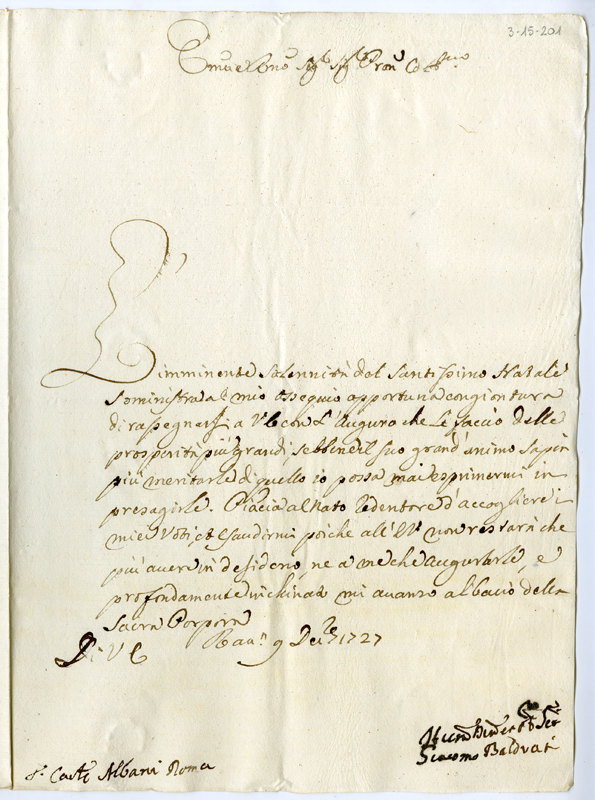 3-15-201
Em̃o e Rmo Sig.r Sig.r Pron Col.mo
L'imminente solennità del Santissimo Natale
somministra al mio ossequio opportuna congiontura
di rassegnarsi a VE con l'augurio che Le faccio delle
prosperità più grandi, sebbene il suo grand'animo sapia
più meritarle di quello io possa mai esprimermi in
presagirle. Piacia al Nato Redentore d'accogliere i
miei Voti, et esaudirmi poiche all'EV non restarà che
più avere in desiderio, ne a me che augurarle, e
profondamente inchinato mi avanzo al bacio della
Sacra Porpora
Di VE Rav.a 9 Dec.re 1727
Giacomo Balduati
S.r Card.e Albani Roma